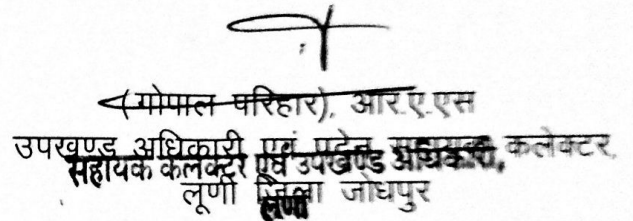 (गोपाल परिहार), आर.ए.एस
उपखण्ड अधिकारी एवं पदेन सहायक कलेक्टर,
सहायक कलेक्टर एवं उपखण्ड अधिकारी,
लूणी जिला जोधपुर
लूणी